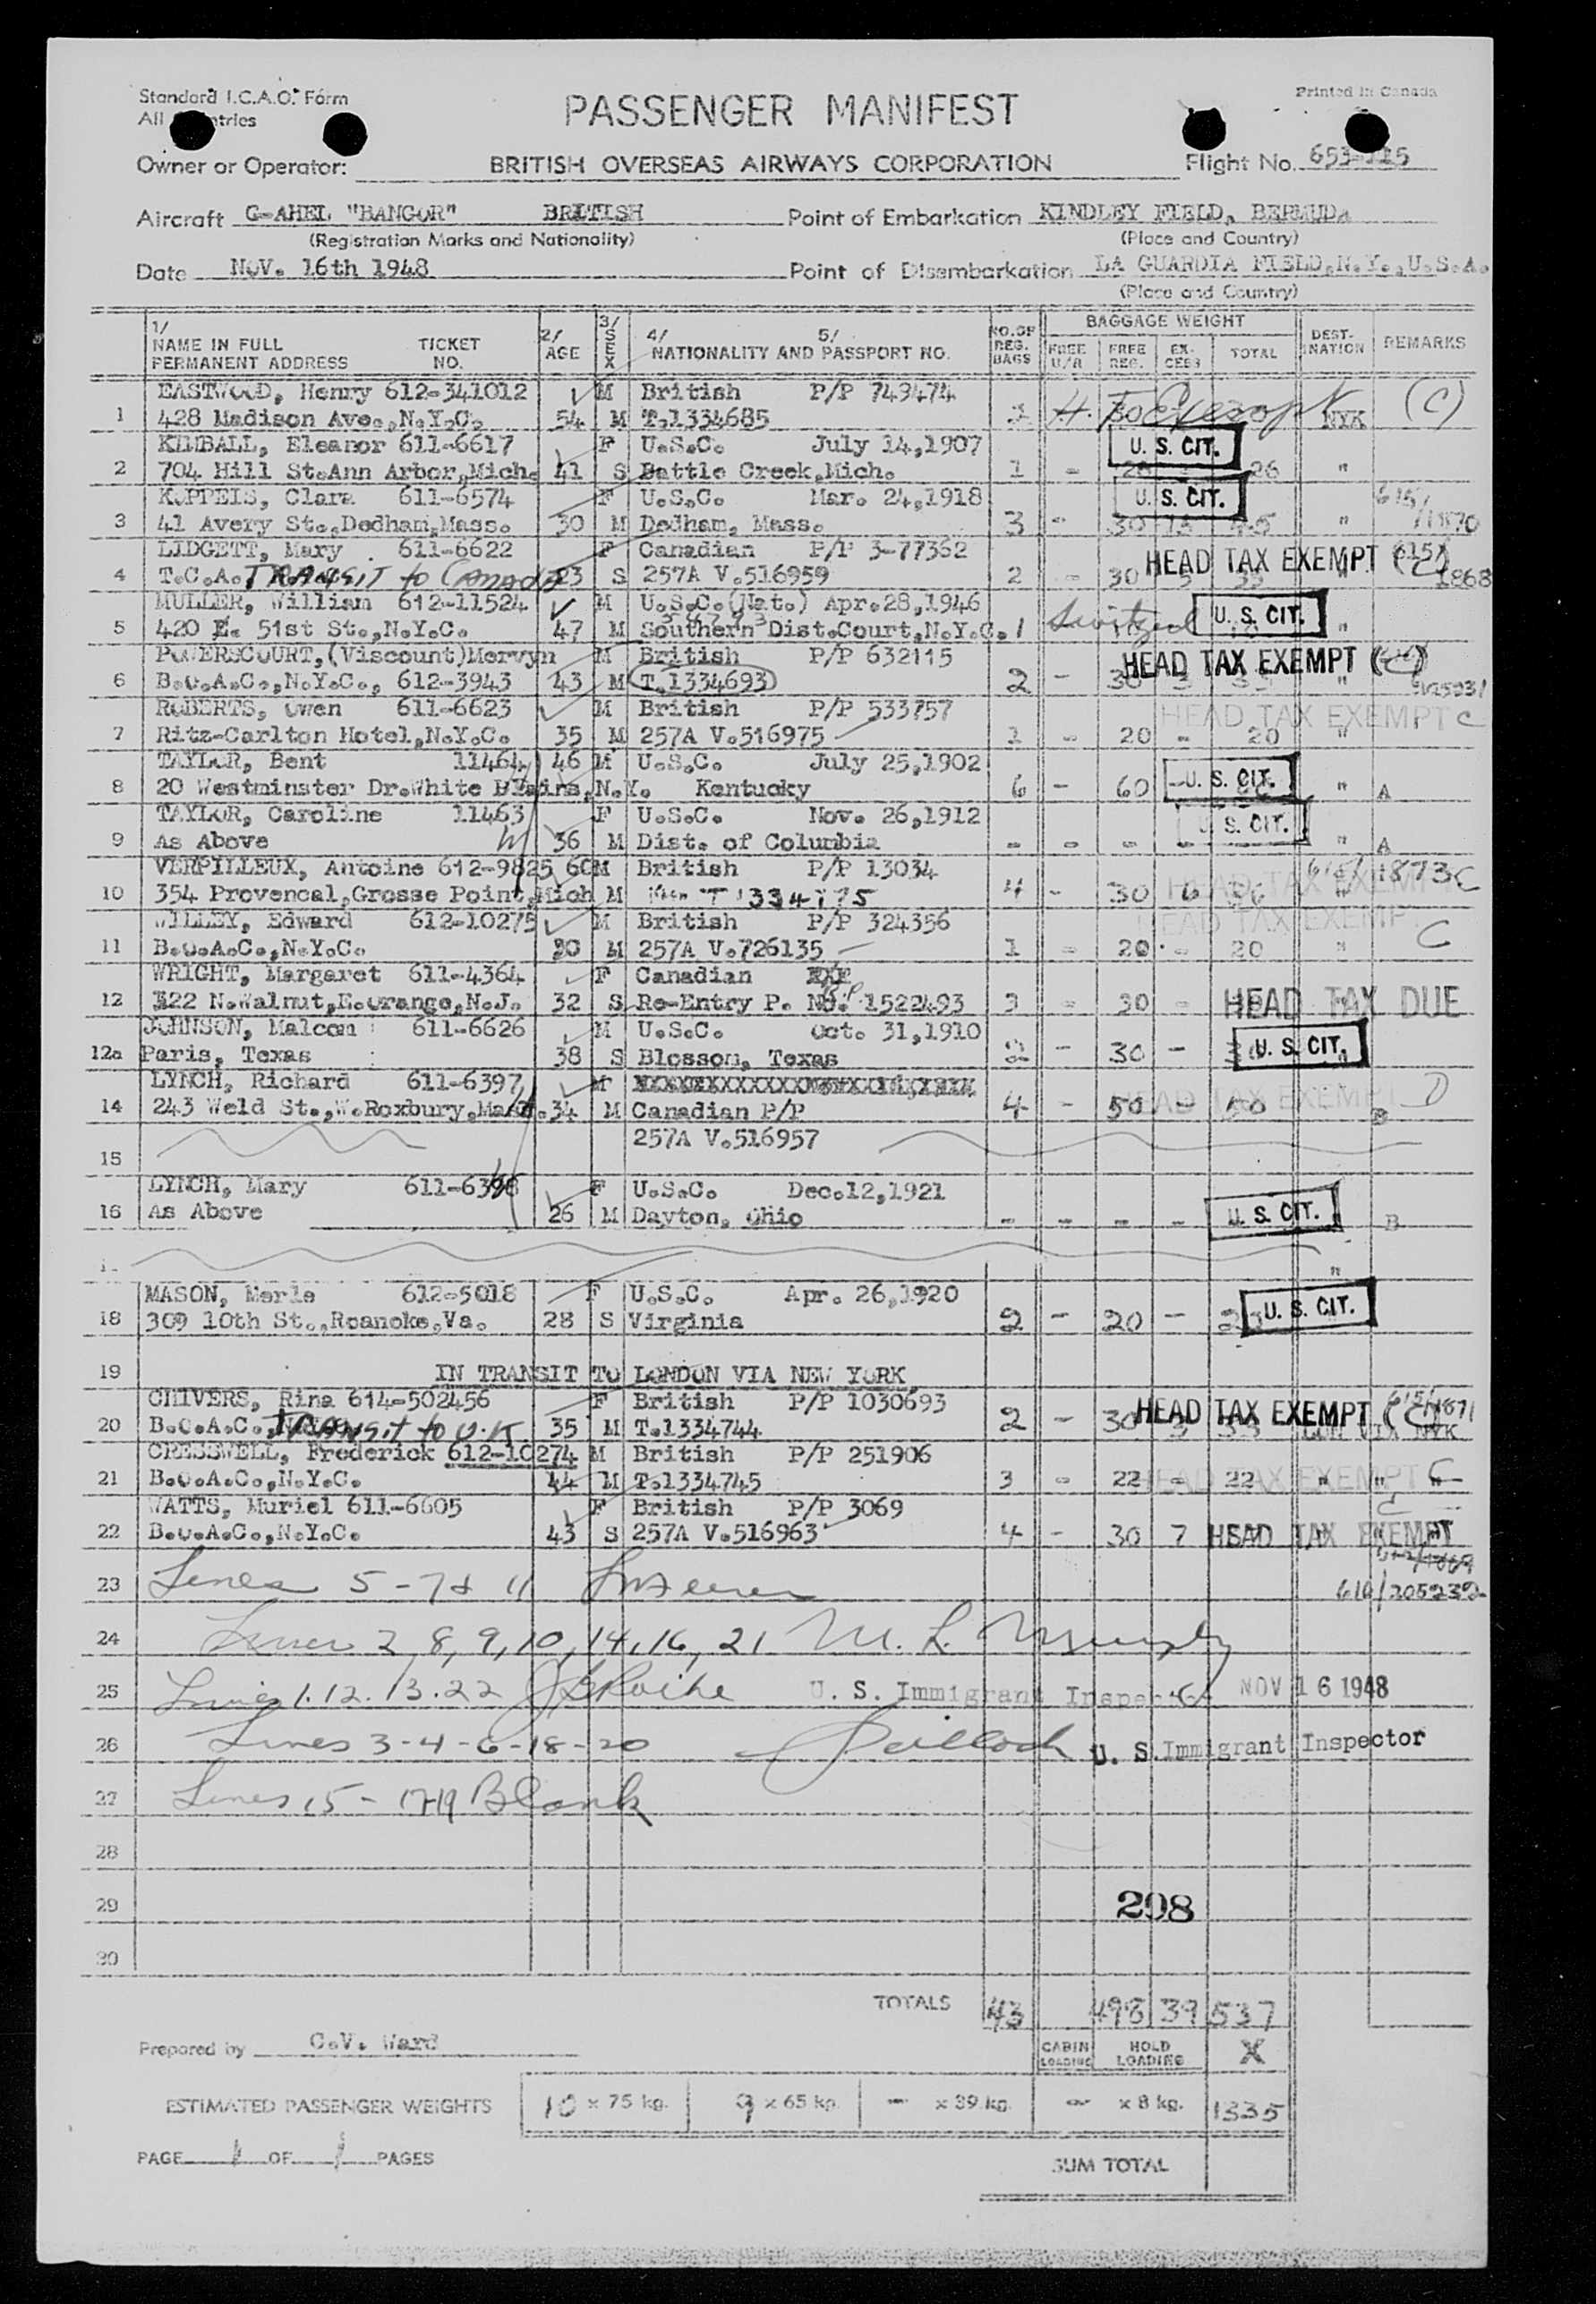 Standard I.C.A.O. Form
PASSENGER MANIFEST
Printed in Canada
All
Owner or Operator: BRITISH OVERSEAS AIRWAYS CORPORATION Flight No. 653-115
Aircraft G-AHEL "BANGOR" BRITISH Point of Embarkation KINDLEY FIELD, BERMUDA
(Registration Marks and Nationality) (Place and Country)
Date NOV. 16th 1948 Point of Disembarkation LA GUARDIA FIELD,N.Y.,U.S.A.
(Place and Country)
1/ NAME IN FULL PERMANENT ADDRESS TICKET NO. 2/ AGE 3/ SEX 4/ 5/ NATIONALITY AND PASSPORT NO. NO.OF REG. BAGS BAGGAGE WEIGHT FREE U/A FREE REG. EXCESS TOTAL DESTINATION REMARKS
EASTWOOD, Henry 612-341012 M British P/P 749474 (C)
1 428 Madison Ave.,N.Y.C. 54 M T.1334685 NYK
KIMBALL, Eleanor 611-6617 F U.S.C. July 14,1907 U. S. CIT.
2 704 Hill St.Ann Arbor,Mich. 41 S Battle Creek,Mich. 1 - 26 - 26 "
KOPPEIS, Clara 611-6574 F U.S.C. Mar. 24,1918 U. S. CIT. 615/
3 41 Avery St.,Dedham,Mass. 30 M Dedham, Mass. 3 - 30 15 45 " 1870
LIDGETT, Mary 611-6622 F Canadian P/P 3-77362 HEAD TAX EXEMPT (C) 615/
4 T.C.A. TRANSIT to CANADA 23 S 257A V.516959 2 - 30 5 35 " 1868
MULLER, William 612-11524 M U.S.C.(Nat.) Apr.28,1946 U. S. CIT.
5 420 E. 51st St.,N.Y.C. 47 M Southern Dist.Court,N.Y.C. 1 "
POWERSCOURT,(Viscount)Mervyn M British P/P 632115 HEAD TAX EXEMPT (C)
6 B.O.A.C.,N.Y.C., 612-3943 43 M T.1334693 2 - 30 3 33 "
ROBERTS, Owen 611-6623 M British P/P 533757 HEAD TAX EXEMPT C
7 Ritz-Carlton Hotel,N.Y.C. 35 M 257A V.516975 1 - 20 - 20 "
TAYLOR, Bent 11464 46 M U.S.C. July 25,1902 U. S. CIT.
8 20 Westminster Dr.White Plains,N.Y. Kentucky 6 - 60 - " A
TAYLOR, Caroline 11463 F U.S.C. Nov. 26,1912 U. S. CIT.
9 As Above 36 M Dist. of Columbia - - - - " A
VERPILLEUX, Antoine 612-9825 60M British P/P 13034 615/1873 C
10 354 Provencal,Grosse Point,Mich M T 1334775 4 - 30 6 36 " HEAD TAX EXEMPT
WILLEY, Edward 612-10275 M British P/P 324356 HEAD TAX EXEMPT
11 B.O.A.C.,N.Y.C. 30 M 257A V.726135 1 - 20 - 20 " C
WRIGHT, Margaret 611-4364 F Canadian
12 122 N.Walnut,E.Orange,N.J. 32 S Re-Entry P. No. 1522493 3 - 30 - HEAD TAX DUE
JOHNSON, Malcom 611-6626 M U.S.C. Oct. 31,1910
12a Paris, Texas 38 S Blossom, Texas 2 - 30 - U. S. CIT.
LYNCH, Richard 611-6397
14 243 Weld St.,W.Roxbury,Mass. 34 M Canadian P/P 4 - 50 - 50 HEAD TAX EXEMPT D B
15 257A V.516957
LYNCH, Mary 611-6398 F U.S.C. Dec.12,1921
16 As Above 26 M Dayton, Ohio - - - - U. S. CIT. B
"
MASON, Merle 612-5018 F U.S.C. Apr. 26,1920
18 309 10th St.,Roanoke,Va. 28 S Virginia 2 - 20 - U. S. CIT.
19 IN TRANSIT TO LONDON VIA NEW YORK
CHIVERS, Rina 614-502456 F British P/P 1030693 HEAD TAX EXEMPT (C) 615/1871
20 B.O.A.C., TRANSIT to U.K. 35 M T.1334744 2 - 30 LON VIA NYK
CRESSWELL, Frederick 612-10274 M British P/P 251906
21 B.O.A.C.,N.Y.C. 44 M T.1334745 3 - 22 - 22 " " " HEAD TAX EXEMPT C
WATTS, Muriel 611-6605 F British P/P 3069 C
22 B.O.A.C.,N.Y.C. 43 S 257A V.516963 4 - 30 7 HEAD TAX EXEMPT
23 Lines 5-7 & 11 610/205232
24 Lines 2, 8, 9, 10, 14, 16, 21 M. L. Murphy
25 Lines 1.12.13.22 U. S. Immigrant Inspector NOV 16 1948
26 Lines 3-4-6-18-20 U. S. Immigrant Inspector
27 Lines 15-17-19 Blank
28
29 298
30
TOTALS 43 498 39 537
Prepared by C.V. Ward CABIN LOADING HOLD LOADING X
ESTIMATED PASSENGER WEIGHTS 10 x 75 kg. 9 x 65 kg. - x 39 kg. - x 8 kg. 1335
PAGE 1 OF 1 PAGES
SUM TOTAL